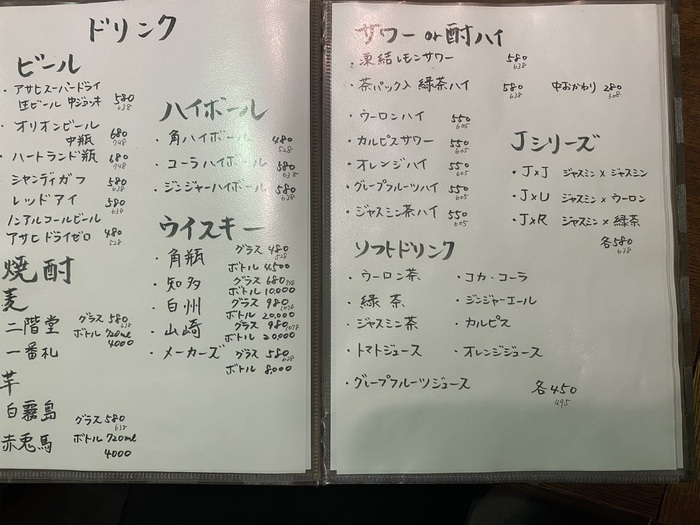 ドリンク
ビール
・アサヒスーパードライ
生ビール 中ジョッキ 580 638
・オリオンビール
中瓶 680 748
・ハートランド瓶 680 748
シャンディガフ
レッドアイ 580 638
ノンアルコールビール
アサヒドライゼロ 480 528
焼酎
麦
二階堂 グラス 580 638
一番札 ボトル 720ml 4000
芋
白霧島 グラス 580 638
赤兎馬 ボトル 720ml 4000
ハイボール
・角ハイボール 480 528
・コーラハイボール 580 638
・ジンジャーハイボール 580 638
ウイスキー
・角瓶 グラス 480 528
ボトル 4,500
・知多 グラス 680 748
ボトル 10,000
・白州 グラス 980 1078
ボトル 20,000
・山崎 グラス 980 1078
ボトル 20,000
・メーカーズ グラス 580 638
ボトル 8,000
サワー or 酎ハイ
・凍結レモンサワー 580 638
・茶パック入 緑茶ハイ 580 638 中おかわり 280 308
・ウーロンハイ 550 605
・カルピスサワー 550 605
・オレンジハイ 550 605
・グレープフルーツハイ 550 605
・ジャスミン茶ハイ 550 605
Jシリーズ
・J×J ジャスミン×ジャスミン
・J×U ジャスミン×ウーロン
・J×R ジャスミン×緑茶
各580 638
ソフトドリンク
・ウーロン茶 ・コカ・コーラ
・緑茶 ・ジンジャーエール
・ジャスミン茶 ・カルピス
・トマトジュース ・オレンジジュース
・グレープフルーツジュース 各450 495